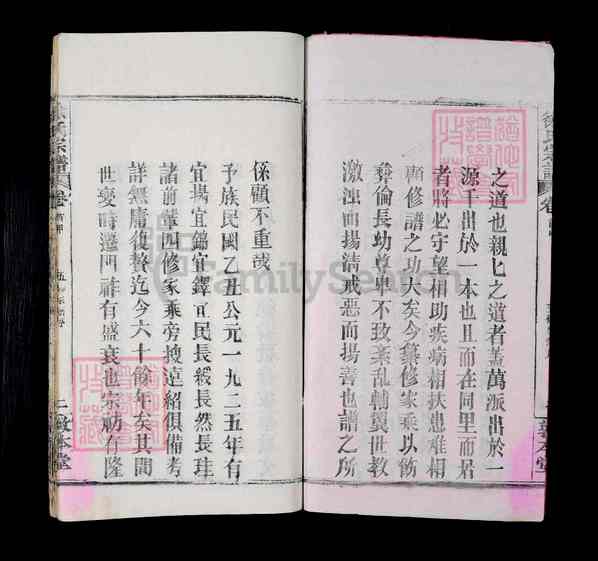 之道也親匕之道者蓋萬派出於一
源千出於一本也且而在同里而居
者將必守望相助疾病相扶患难相
顧修譜之功大矣今纂修家乘以飭
彜倫長幼尊卑不致紊乱輔翼世教
激浊而揚清戒惡而揚善也譜之所
係顧不重哉
予族民國乙丑公元一九二五年有
宜揚宜錦宜鐸宜民長綬長然長珪
諸前輩四修家乘旁搜遠紹俱備考
詳無庸復贅迄今六十餘年矣其間
世变時迁門祚有盛衰也宗祊有隆
氏宗譜 卷首
二 敦本堂
FamilySearch